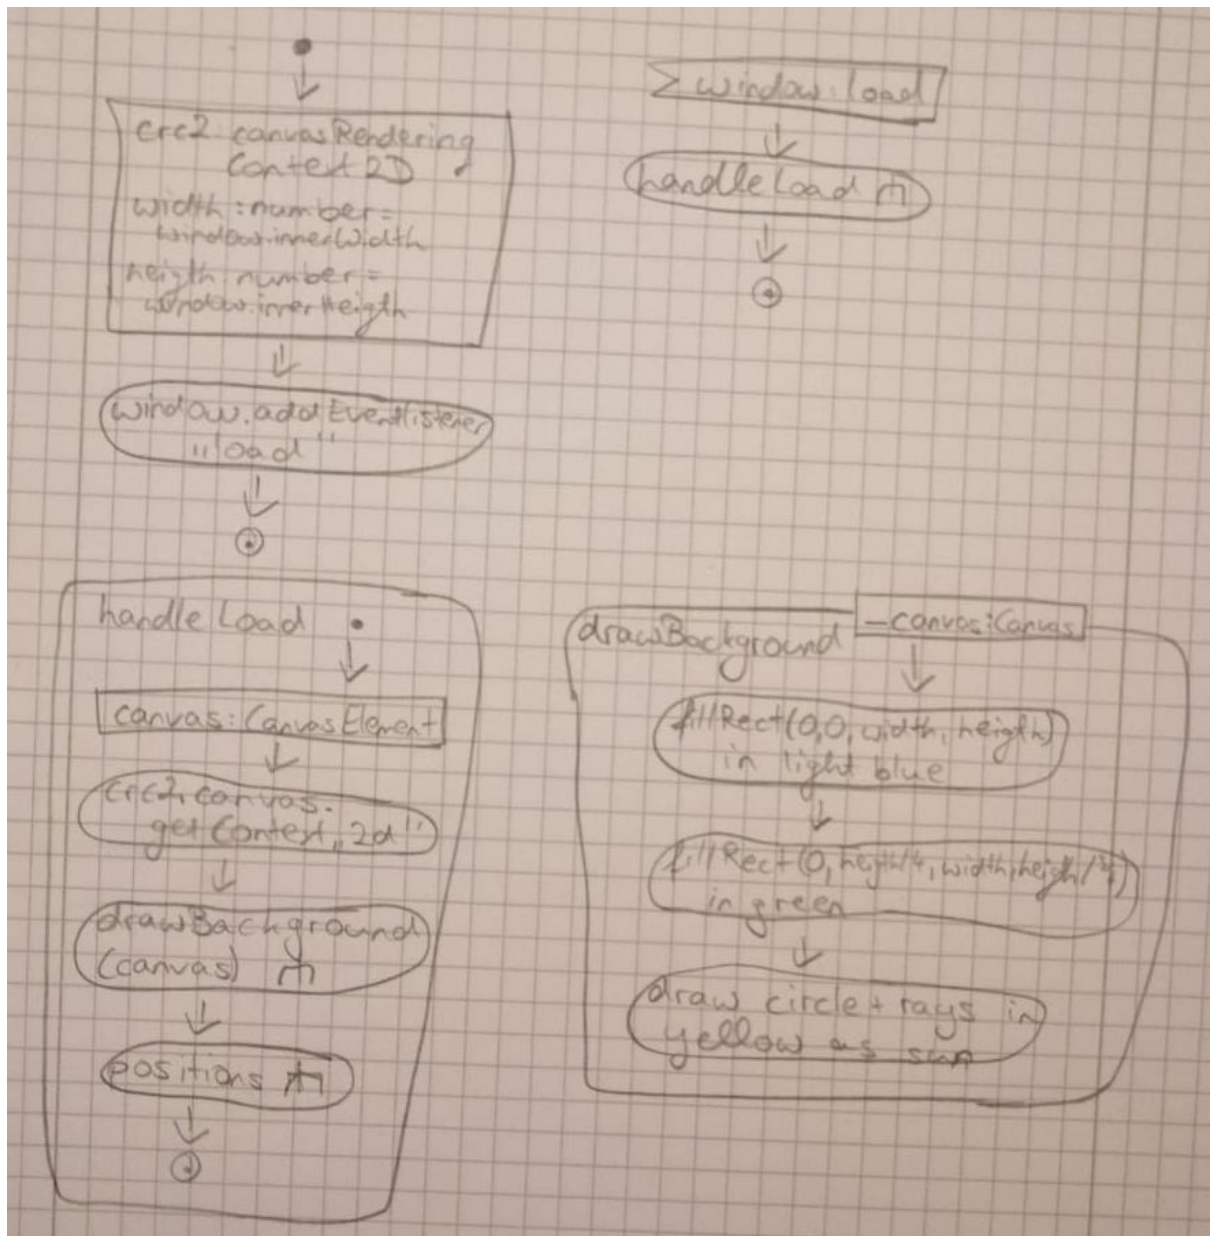 crc2: canvasRendering
Context 2D
width: number =
window.innerWidth
heigth: number =
window.innerHeigth
window.addEventlistener
"load"
window: load
handleLoad
handleLoad
canvas: CanvasElement
crc2, canvas.
getContext "2d"
drawBackground
(canvas)
positions
drawBackground
canvas: Canvas
fillRect(0,0, width, heigth)
in light blue
fillRect(0, heigth/4, width, heigth/4)
in green
draw circle + rays in
yellow as sun